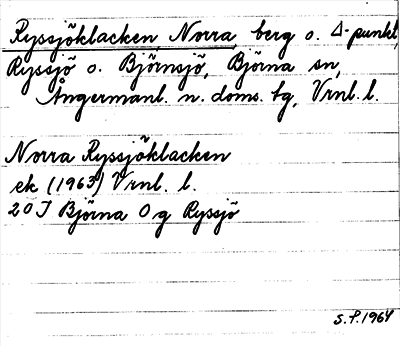 Ryssjöklacken, Norra, berg o. Δ-punkt,
Ryssjö o. Björnsjö, Björna sn,
Ångermanl. n. doms. tg, Vrnl. l.
Norra Ryssjöklacken
ek (1963) Vrnl. l.
20 I Björna O g Ryssjö
S.P. 1964